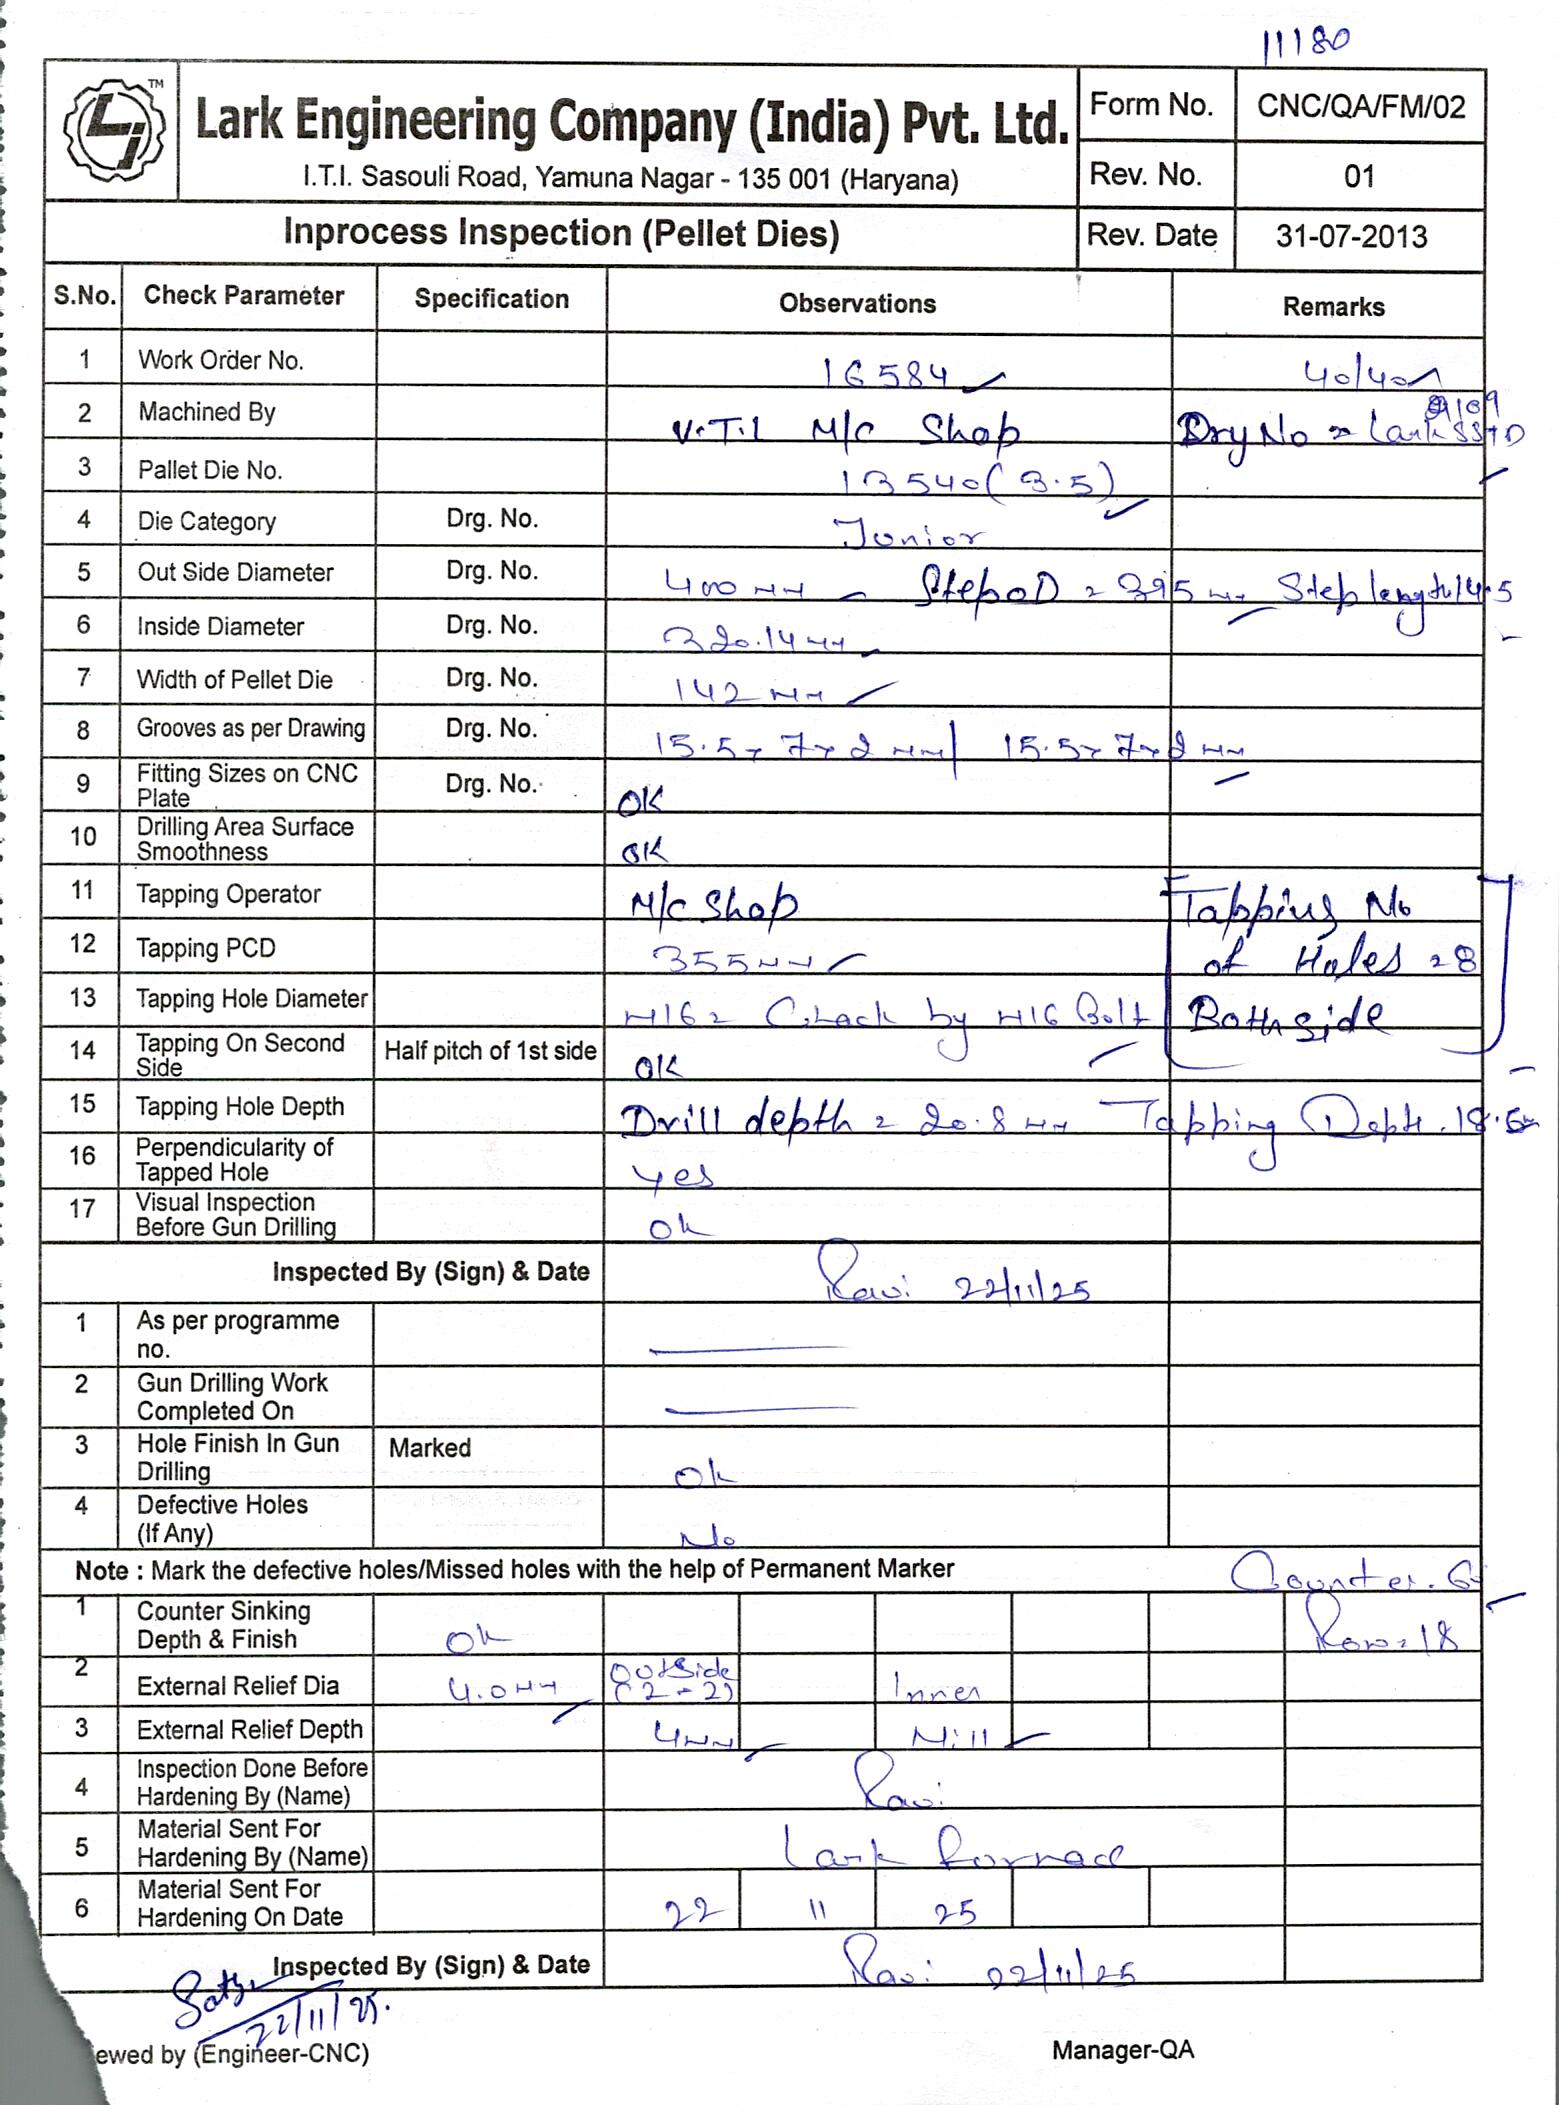 11180
TM
Lark Engineering Company (India) Pvt. Ltd.
I.T.I. Sasouli Road, Yamuna Nagar - 135 001 (Haryana)
Form No. CNC/QA/FM/02
Rev. No. 01
Inprocess Inspection (Pellet Dies)
Rev. Date 31-07-2013
S.No. Check Parameter Specification Observations Remarks
1 Work Order No. 16584 40/40
2 Machined By V.T.L M/c Shop Drg No = Lark
3 Pallet Die No. 13540 (3.5)
4 Die Category Drg. No. Junior
5 Out Side Diameter Drg. No. 400 MM Step OD = 395 MM Step length 14.5
6 Inside Diameter Drg. No. 320.14 MM
7 Width of Pellet Die Drg. No. 142 MM
8 Grooves as per Drawing Drg. No. 15.5 x 7 x 2 MM / 15.5 x 7 x 2 MM
9 Fitting Sizes on CNC Plate Drg. No. OK
10 Drilling Area Surface Smoothness OK
11 Tapping Operator M/c Shop Tapping No
12 Tapping PCD 355 MM of Holes = 8
13 Tapping Hole Diameter M16 = Chack by M16 Bolt Both side
14 Tapping On Second Side Half pitch of 1st side OK
15 Tapping Hole Depth Drill depth = 20.8 MM Tapping Depth
16 Perpendicularity of Tapped Hole yes
17 Visual Inspection Before Gun Drilling Ok
Inspected By (Sign) & Date Ravi 22/11/25
1 As per programme no.
2 Gun Drilling Work Completed On
3 Hole Finish In Gun Drilling Marked Ok
4 Defective Holes (If Any) No
Note : Mark the defective holes/Missed holes with the help of Permanent Marker Counter
1 Counter Sinking Depth & Finish Ok Row = 18
2 External Relief Dia 4.0 MM Outside (2-2) Inner
3 External Relief Depth 4 MM Nill
4 Inspection Done Before Hardening By (Name) Ravi
5 Material Sent For Hardening By (Name) Lark Fornace
6 Material Sent For Hardening On Date 22 11 25
Inspected By (Sign) & Date Ravi 22/11/25
22/11/25.
ewed by (Engineer-CNC) Manager-QA